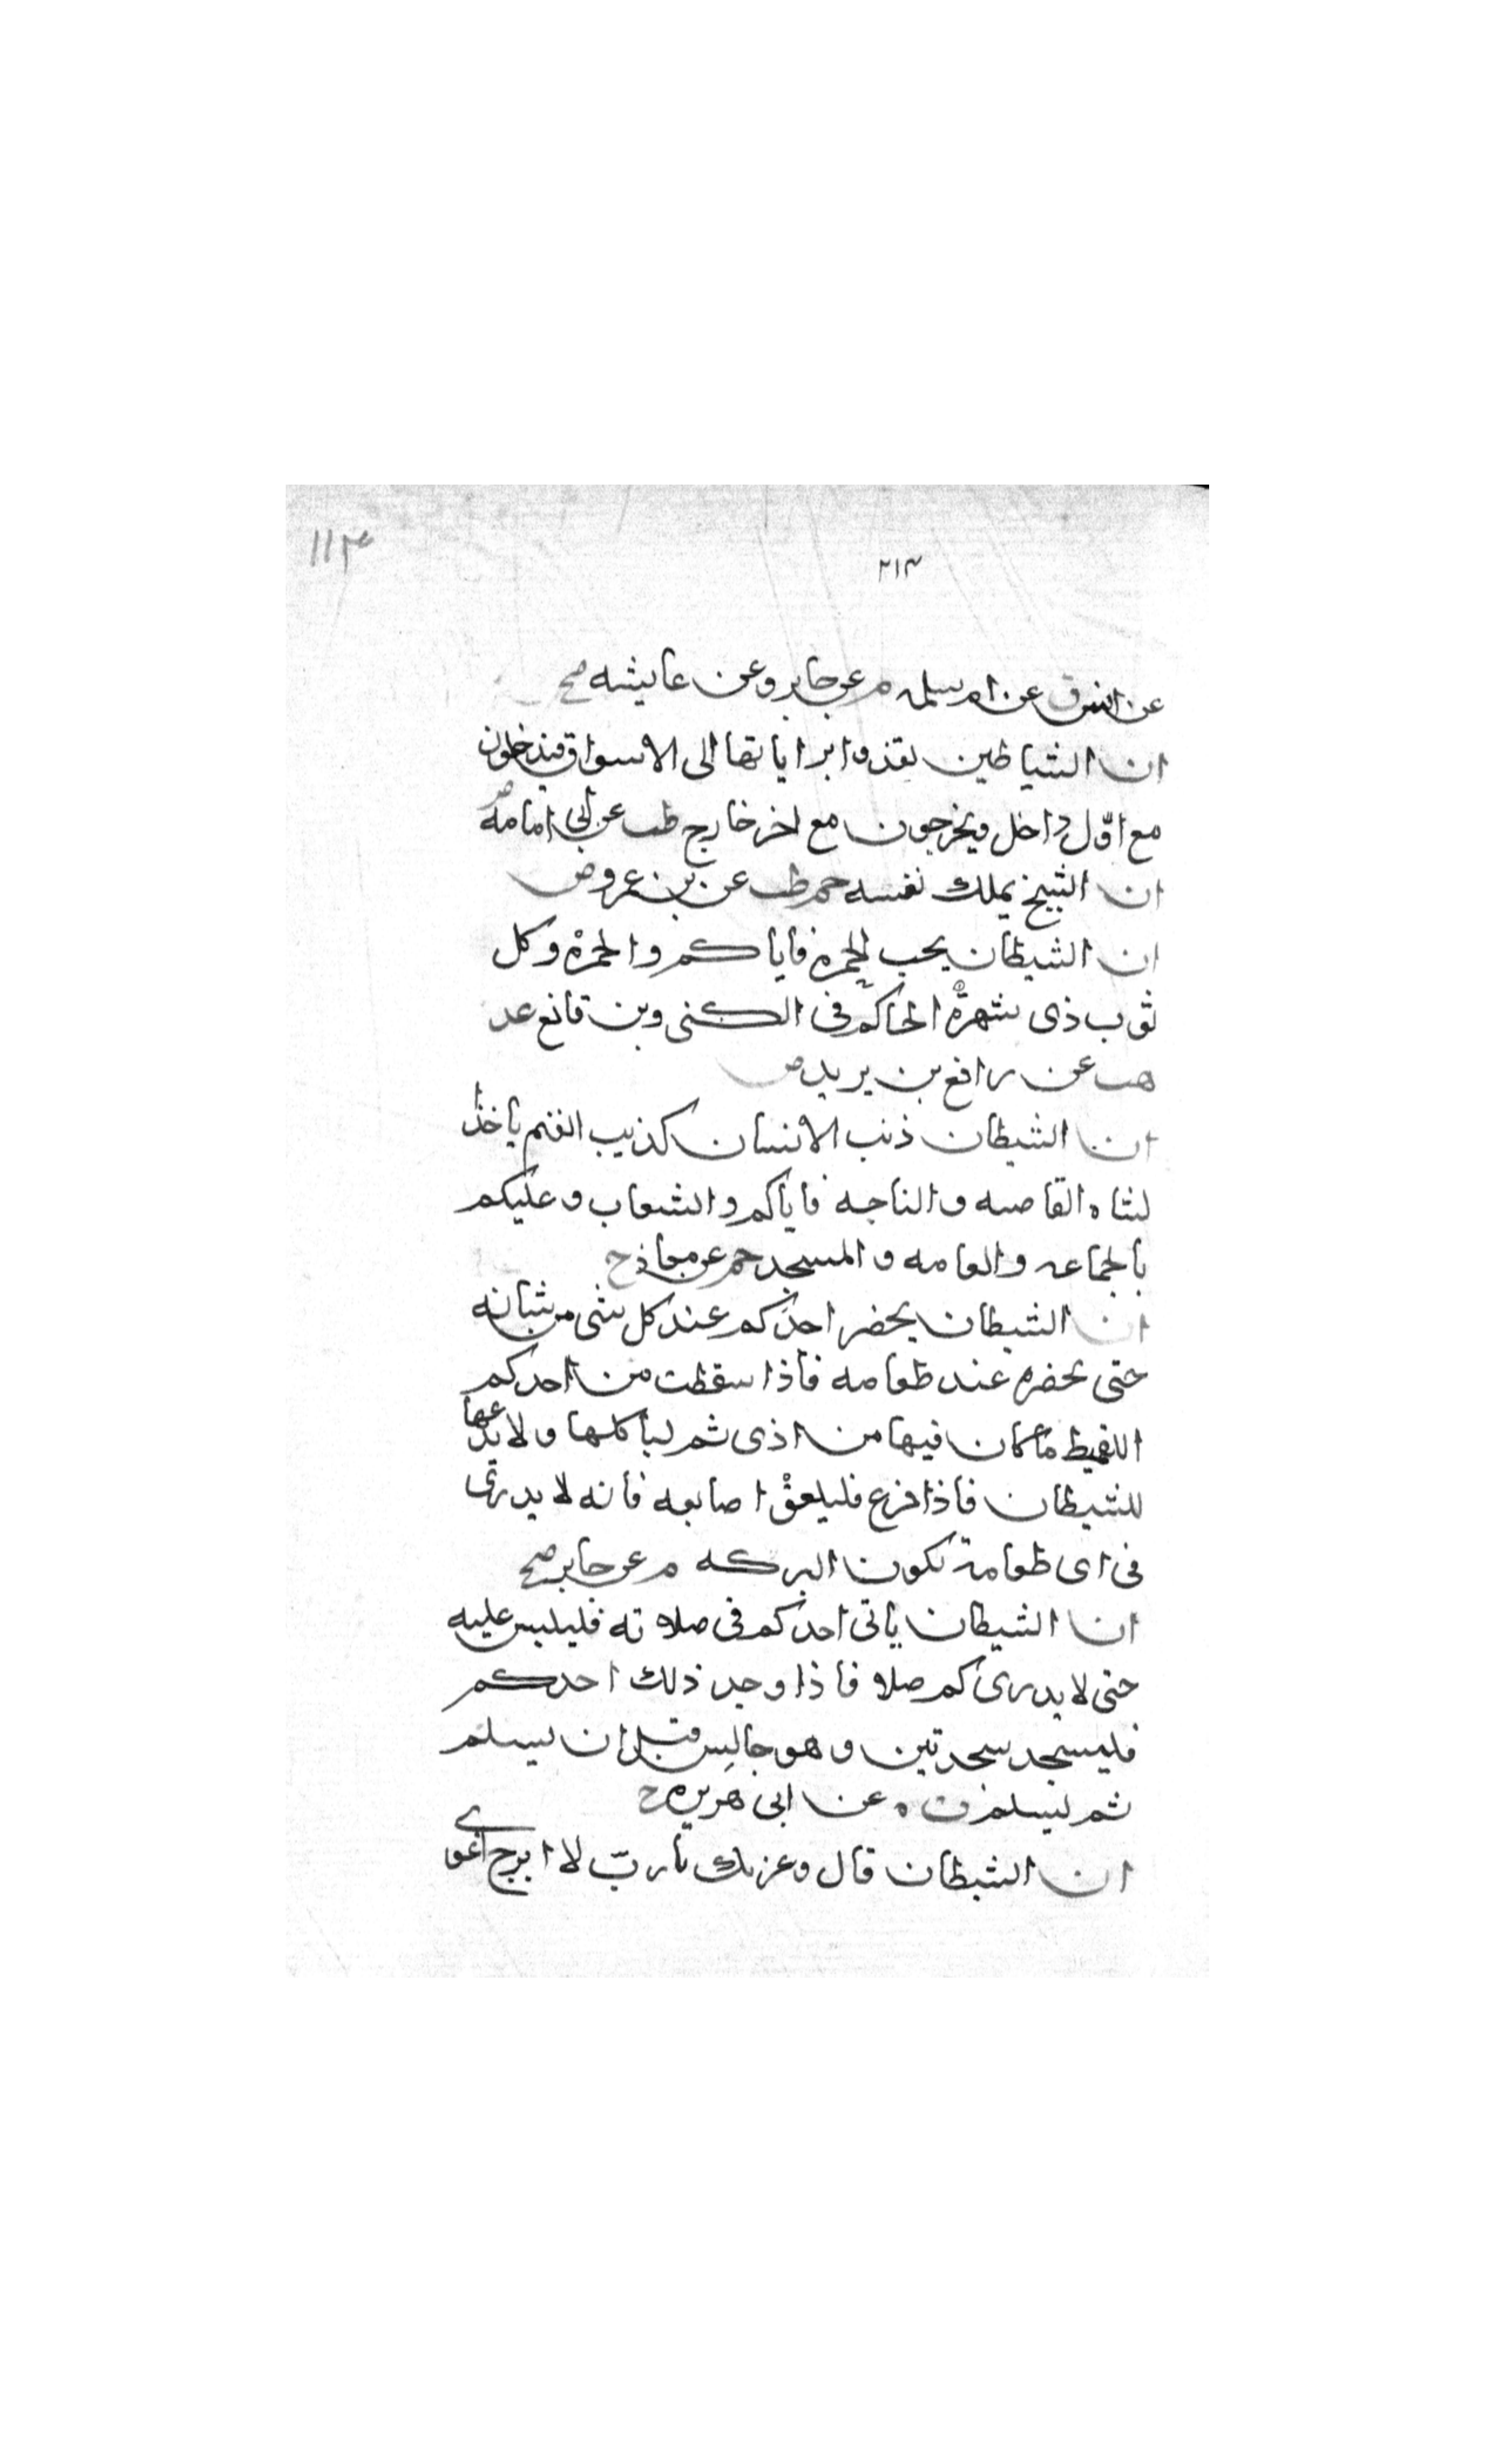 ١١٣
٢١٣
عن انس ق عن ام سلمه م عن جابر وعن عايشه صح
ان الشياطين تغذوا براياتها الى الاسواق فيدخلون
مع اوّل داخل ويخرجون مع اخر خارج طب عن ابي امامه ض
ان الشيخ يملك نفسه حم طب عن بن عمرو ض
ان الشيطان يحب الحمره فاياكم والحمرة وكل
ثوب ذى شهرة الحاكم فى الكنى وبن قانع عد
هب عن رافع بن يزيد ض
ان الشيطان ذئب الانسان كذيب الغنم ياخذ ا
لشاه القاصيه والناجيه فاياكم والشعاب وعليكم
بالجماعه والعامه والمسجد حم عن معاذ ح
ان الشيطان يحضر احدكم عند كل شى من شانه
حتى يحضره عند طعامه فاذا سقطت من احدكم
اللقمه فليمط ما كان فيها من اذى ثم ليأكلها ولا يدعها
للشيطان فاذا فرغ فليلعقْ اصابعه فانه لا يدرى
فى اى طعامه تكون البركه م عن جابر صح
ان الشيطان ياتى احدكم فى صلاته فليلبس عليه
حتى لا يدرى كم صلا فاذا وجد ذلك احدكم
فليسجد سجدتين وهو جالس قبل ان يسلم
ثم ليسلم ت ه عن ابى هريره ح
ان الشيطان قال وعزتك يا ربّ لا ابرح اغوي